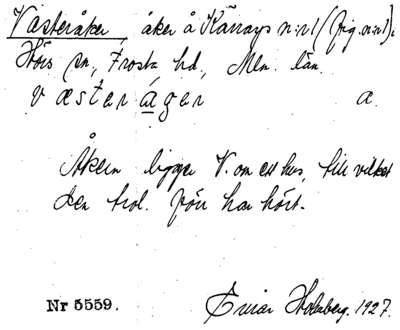 Västeråker, åker å Kärrarps n:r 1 (fig. n:r 1) i
Hörs sn, Frosta hd, Mlm. län.
væsteråger a.
Åkern ligger V. om ett hus, till vilket
den trol. förr har hört.
Nr 5559. Einar Holmberg. 1927.